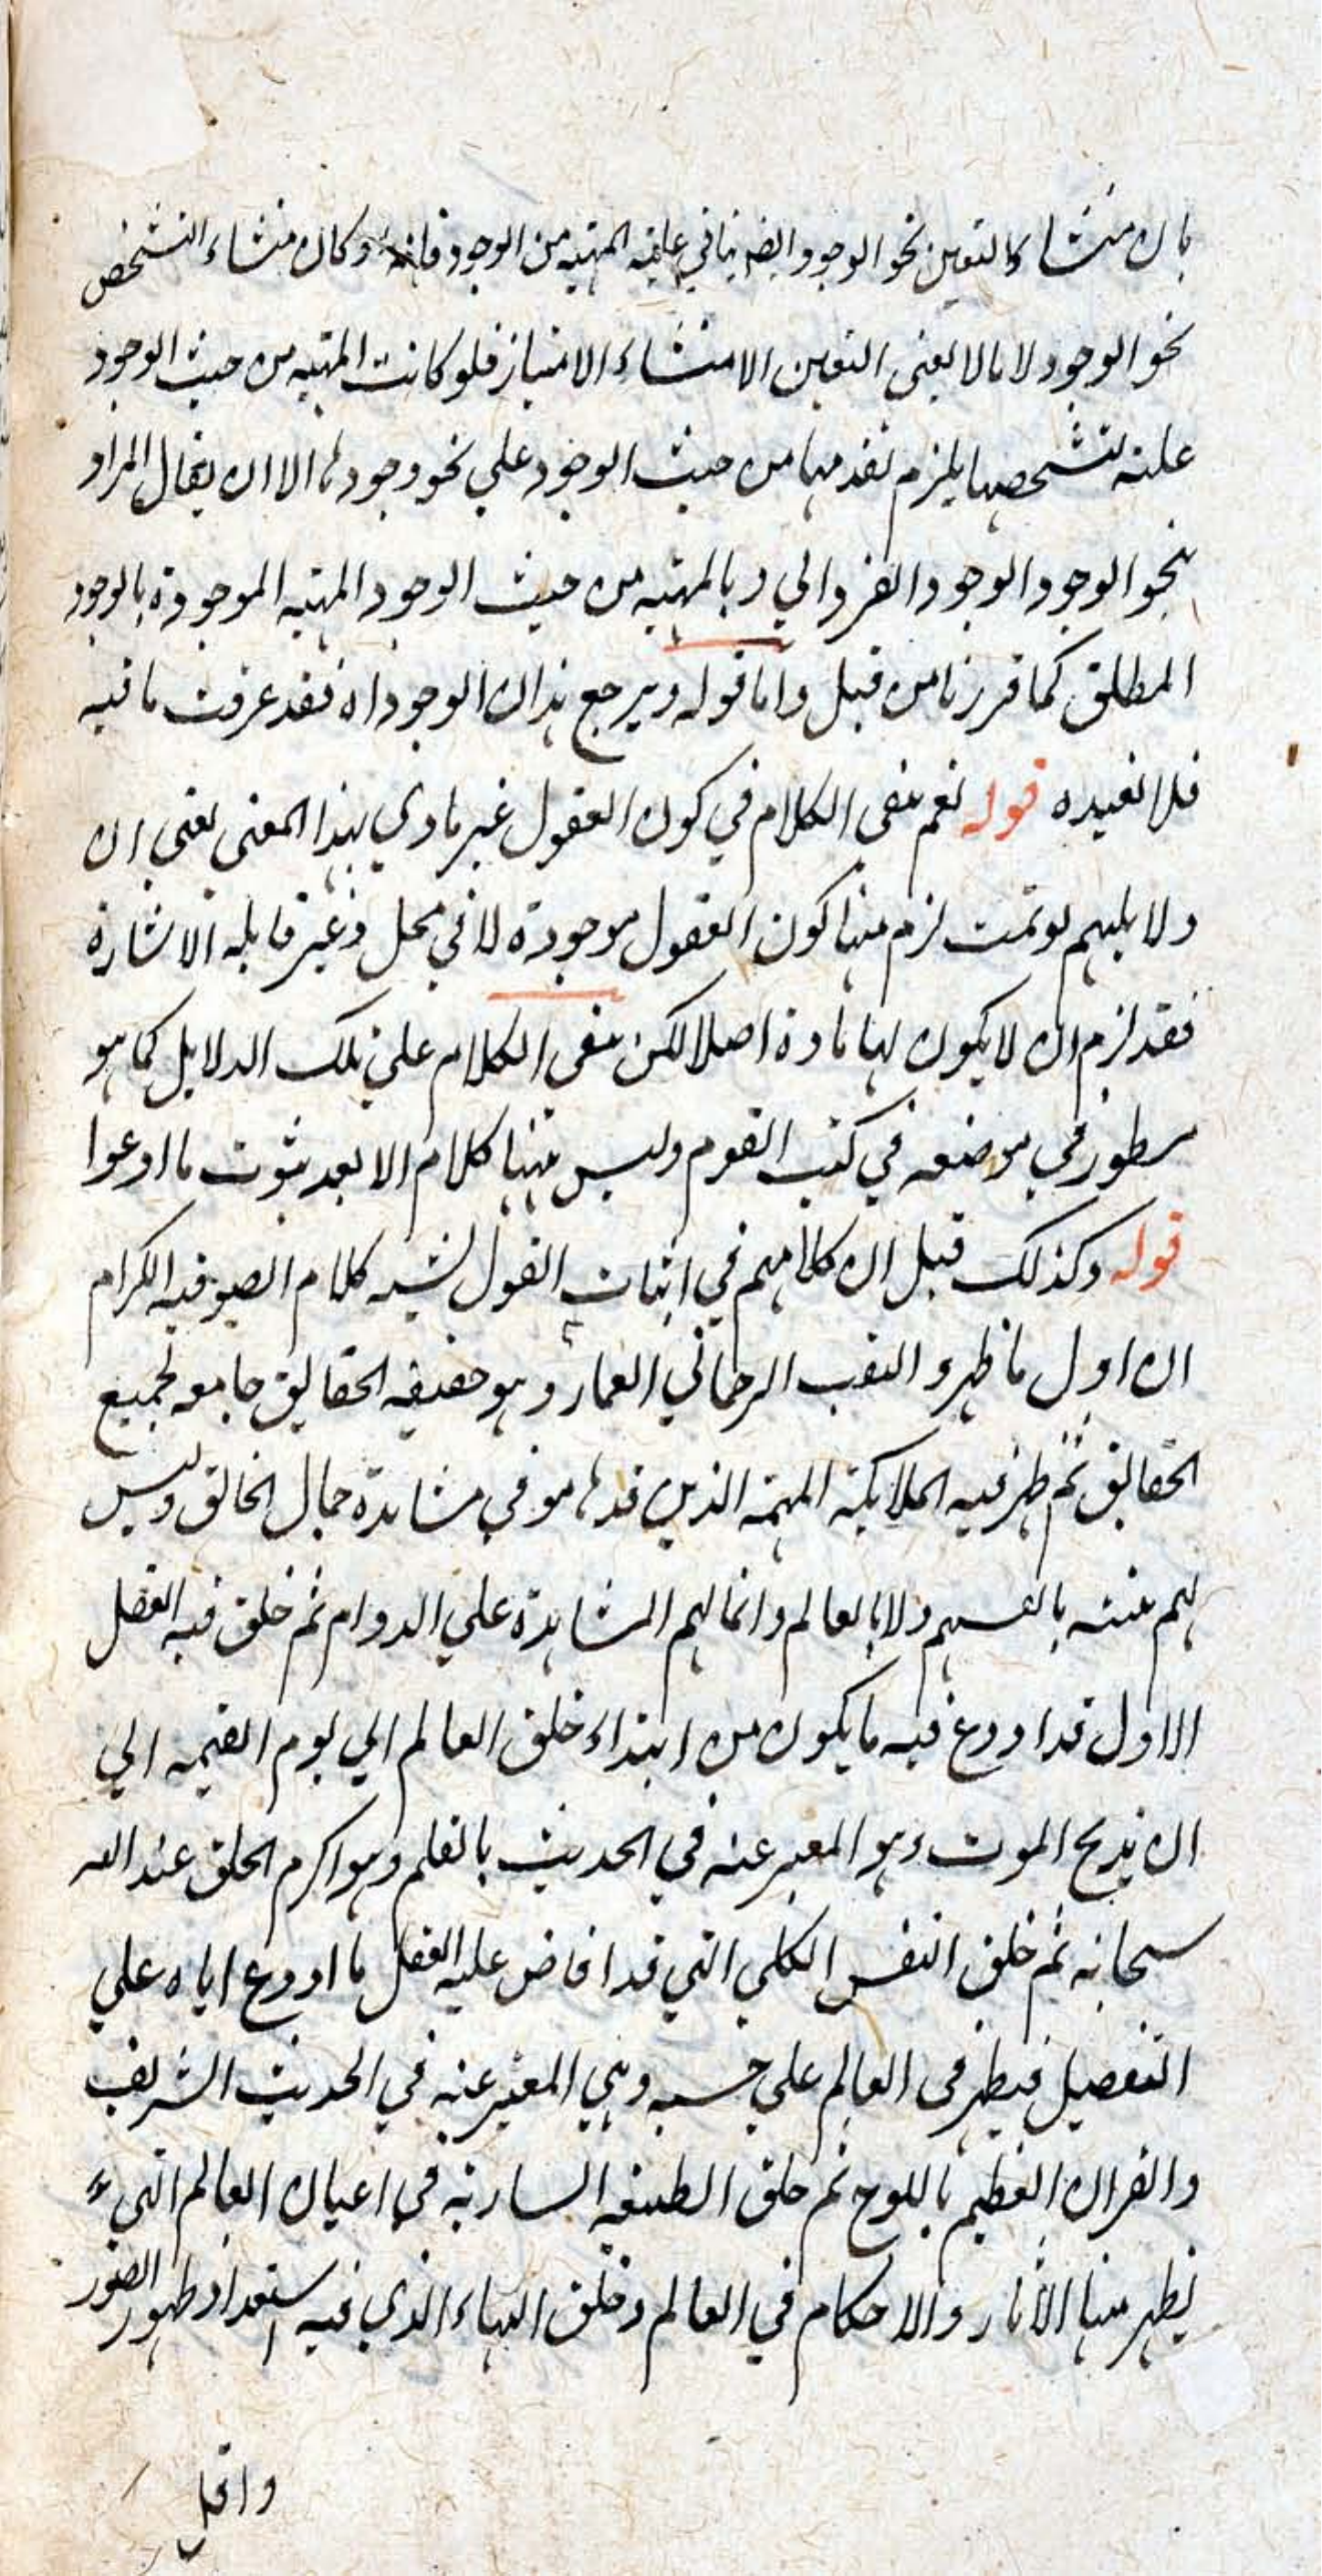 بان منشاء التعين نحو الوجود ايضا ينافي علية المهية من الوجود فانه لو كان منشاء التشخص
نحو الوجود لا مالا يعني التعين الا منشاء الامتياز فلو كانت المهية من حيث الوجود
علته لتشخصها يلزم تقدمها من حيث الوجود علي نحو وجودها الا ان يقال المراد
بنحو الوجود الوجود الفردالي و بالمهية من حيث الوجود المهية الموجودة بالوجود
المطلق كما قررنا من قبل واما قوله ويرجع هذا ان الوجود اه فقد عرفت ما فيه
فلا نعيده قوله نعم بقي الكلام في كون العقول غير مادي بهذا المعنى يعني ان
دلايلهم لو تمت لزم منها كون العقول موجودة لا في محل وغير قابلة الاشارة
فقد لزم ان لا يكون لها مادة اصلا لكن بقى الكلام علي تلك الدلايل كما هو
مسطور في موضعه في كتب القوم وليس ههنا كلام الا بعد ثبوت ما ادعوا
قوله وكذلك قيل ان كلامهم في اثبات العقول يشبه كلام الصوفيه الكرام
ان اول ما ظهر و النفس الرحماني العماء و هو حقيقه الحقايق جامعه لجميع
الحقايق ثم ظهر فيه الملايكة المهيمة الذين قد هاموا في مشاهدة جمال الخالق وليس
لهم بانفسهم ولا بالعالم وانما لهم المشاهدة علي الدوام ثم خلق فيه العقل
الاول قد اودع فيه ما يكون من ابتداء خلق العالم الي يوم القيمه الي
ان يذبح الموت وهو المعبر عنه في الحديث بالقلم وهو اكرم الخلق عند الله
سبحانه ثم خلق النفس الكلي التي قد افاض عليه العقل ما اودع اياه علي
التفصيل فيظهر فى العالم علي حسبه وهي المعبر عنه في الحديث الشريف
والقران العظيم باللوح ثم خلق الطبيعه السارية في اعيان العالم التي
يظهر منها الآثار والاحكام في العالم وخلق الهباء الذي فيه استعداد ظهور الصور
واقل